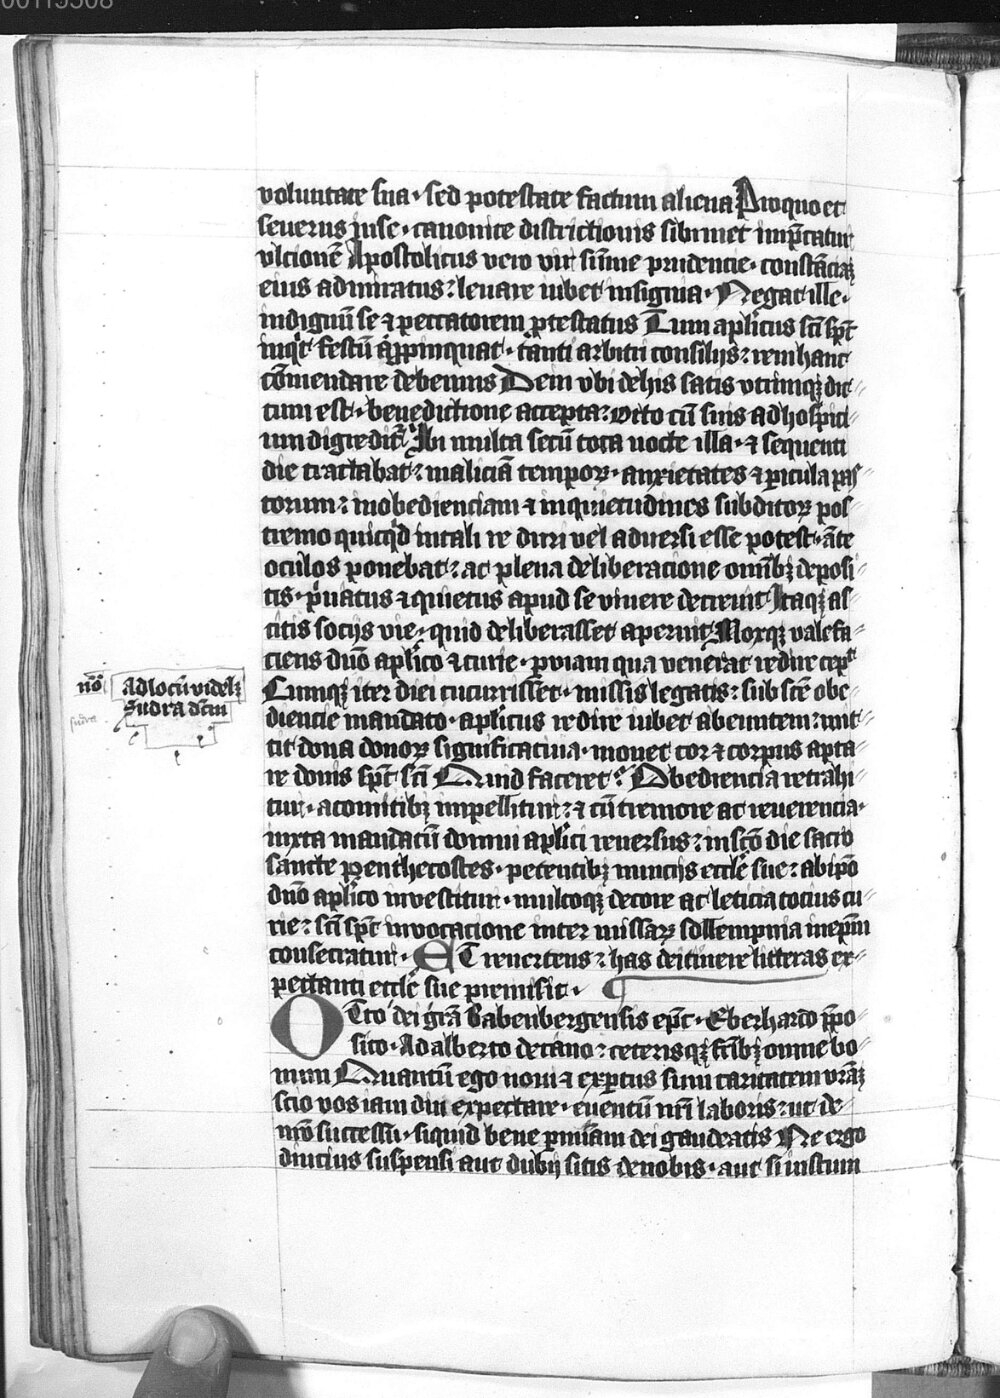 00119308
voluntate sua · sed potestate factum aliena Proquo et
seuerus in se · canonice districtionis sibimet imp̄catur
vlcionē Apostolicus vero vir sūme prudencie · constāciā
eius admiratus : leuare iubet insignia · Negat ille ·
indignū se ⁊ peccatorem ꝓtestatus Tum ap̄licus sc̄i sp̄c
inq̄t festū aꝓpinquat · tanti arbitri consilijs : rem hanc
cōmendare debemus Dein vbi de his satis vtrimqꝫ dic⸗
tum est · benedictione accepta : Otto cū suis ad hospici⸗
um digredit᷑ Ibi multa secū tota nocte illa · ⁊ sequenti
die tractabat : maliciā temporꝝ · anxietates ⁊ ꝑicula pas⸗
torum : inobedienciam ⁊ inquietudines subditorꝝ pos⸗
tremo quicq̄d in tali re duri vel aduersi esse potest · āte
oculos ponebat : ac plena deliberacione omībꝫ deposi⸗
tis · p̄uatus ⁊ quietus apud se viuere decreuit Itaqꝫ as⸗
citis socijs vie · quid deliberasset aperuit Moxqꝫ valefa⸗
ciens dn̄o ap̄lico ⁊ curie · ꝑ viam qua venerat redire cepit
Cumqꝫ iter diei cucurrisset · missis legatis : sub sc̄e obe⸗
diencie mandato · ap̄licus redire iubet abeuntem : mit⸗
tit dona donorꝝ significatiua · mouet cor ⁊ corpus apta⸗
re donis sp̄c sc̄i Quid faceret? Obediencia retrahi⸗
tur · a comitibꝫ impellitur : ⁊ cū tremore ac reuerencia ·
iuxta mandatū domni ap̄lici reuersus : in sc̄o die sacro
sancte penthecostes · petentibꝫ nuncijs eccl̄e sue : ab ip̄o
dn̄o ap̄lico inuestitur · multoqꝫ decore ac leticia tocius cu⸗
rie : sc̄i sp̄c inuocacione inter missarꝝ sollempnia in ep̄m
consecratur · ET reuertens : has de itinere litteras ex⸗
pectanti eccl̄e sue premisit ·
OTto dei gr̄a Babenbergensis ep̄c · Eberhardo p̄po⸗
sito · Adalberto decano : ceterisqꝫ fr̄ibꝫ omne bo⸗
num Quantū ego noui ⁊ exꝑtus sum caritatem vr̄aꝫ
scio vos iam diu expectare · euentū nr̄i laboris : ut de
nr̄o successu · siquid bene ꝓmisam dei gaudeatis Ne ergo
diucius suspensi aut dubij sitis de nobis · aut si iustum
nō Ad locū videlꝫ
Sudra dc̄m
sudra